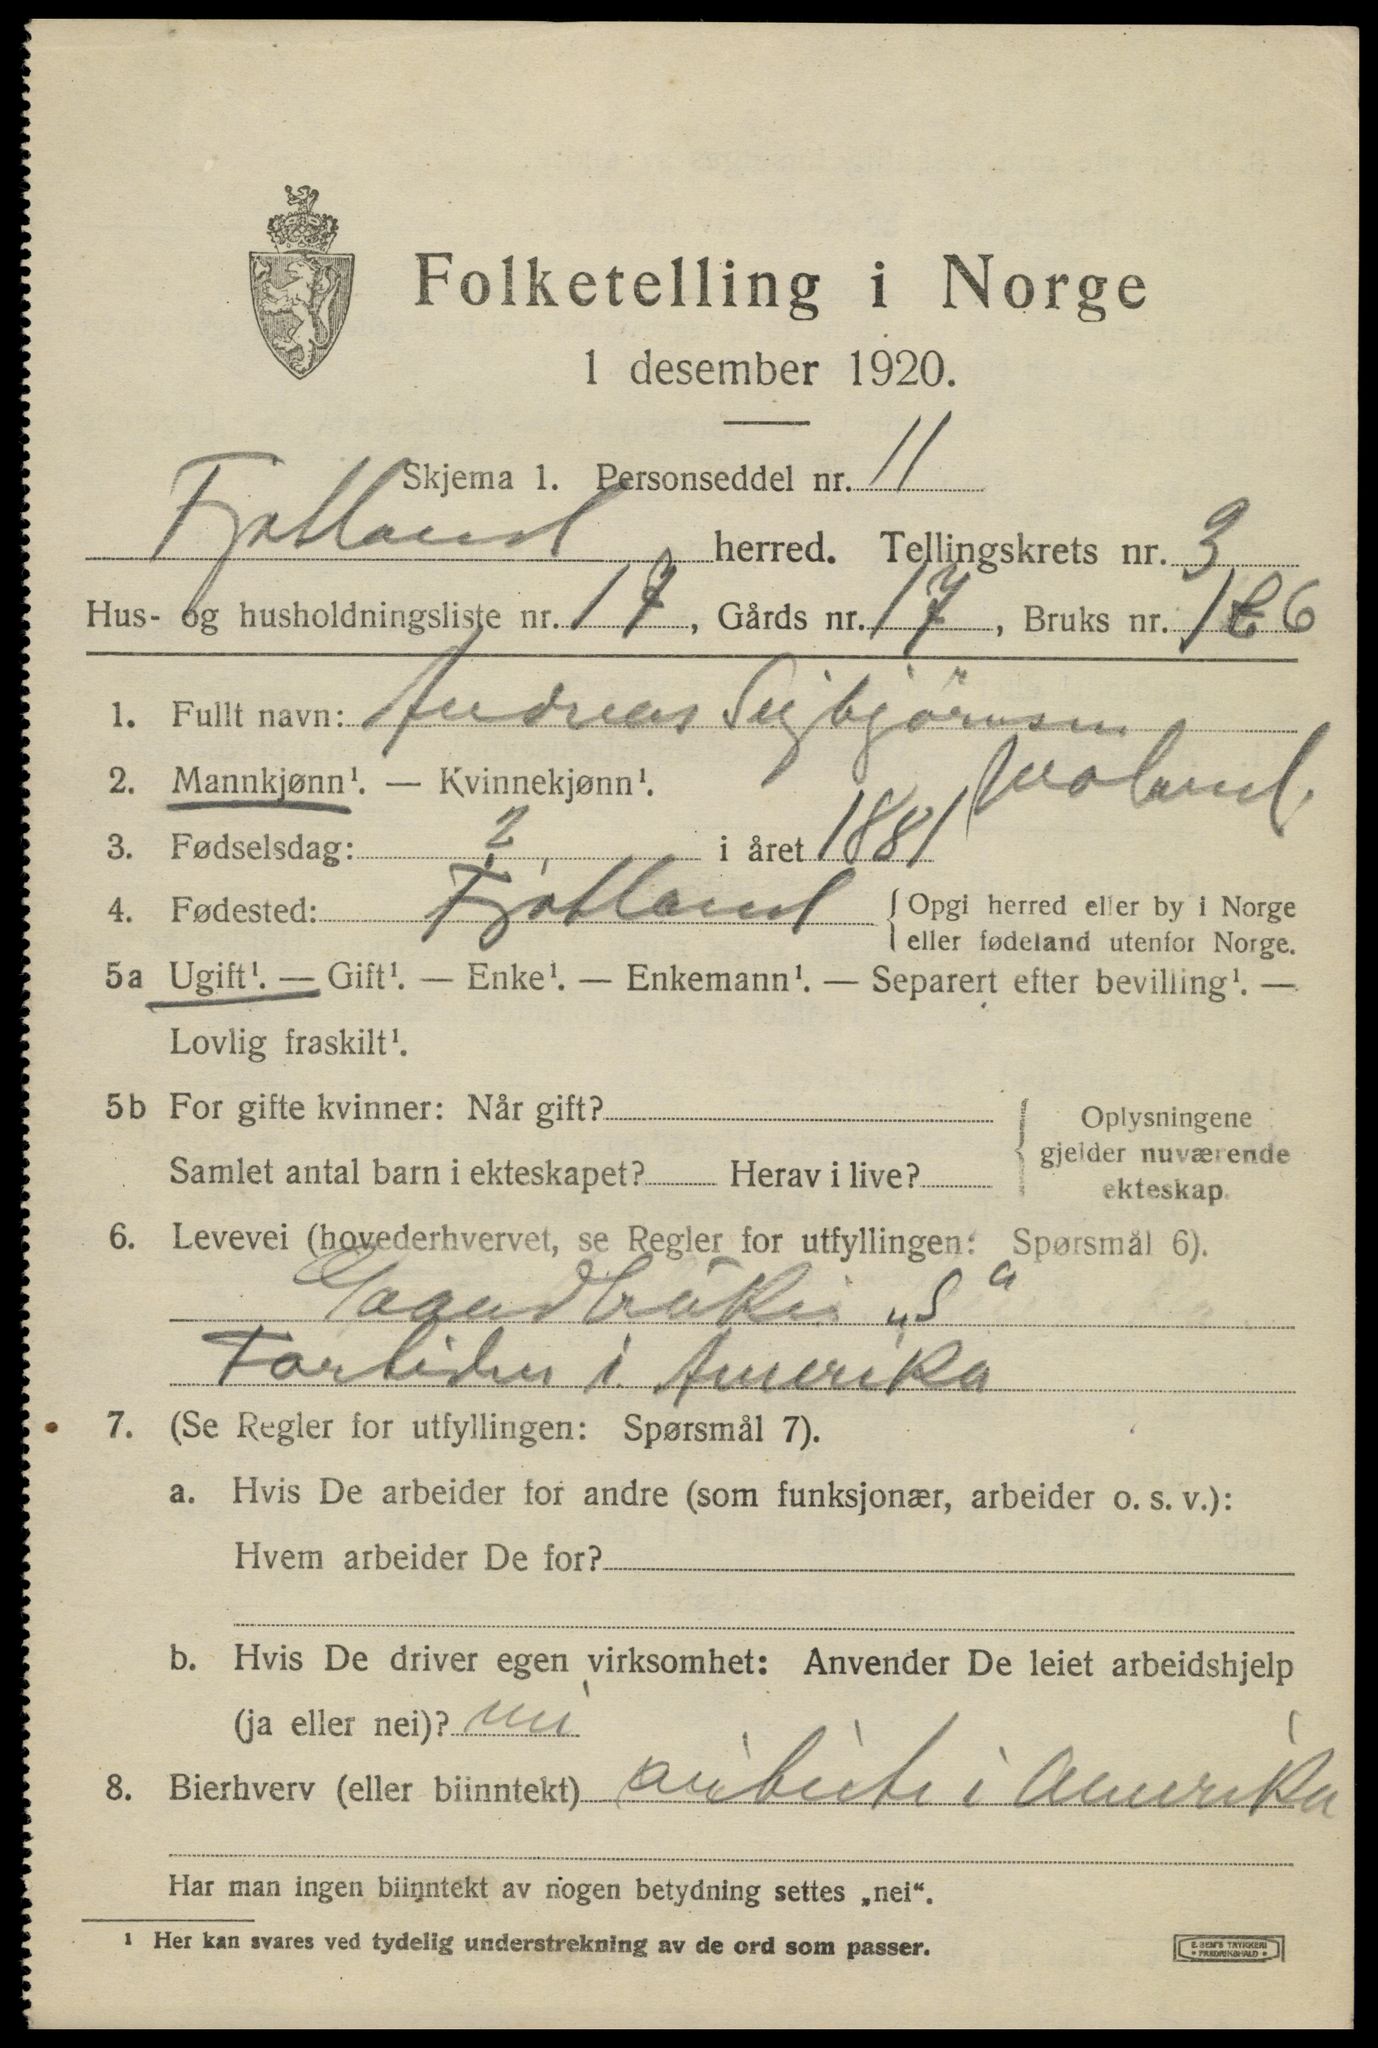 Folketelling i Norge
1 desember 1920.
Skjema 1. Personseddel nr. 11
Fjotland herred. Tellingskrets nr. 3
Hus- og husholdningsliste nr. 17, Gårds nr. 17, Bruks nr. 1 & 6
1. Fullt navn: Andreas Sigbjørnsen
Moland.
2. Mannkjønn¹. — Kvinnekjønn¹.
3. Fødselsdag: 2 i året 1881
4. Fødested: Fjotland { Opgi herred eller by i Norge
eller fødeland utenfor Norge.
5a Ugift¹. — Gift¹. — Enke¹. — Enkemann¹. — Separert efter bevilling¹. —
Lovlig fraskilt¹.
5b For gifte kvinner: Når gift?
Samlet antal barn i ekteskapet? Herav i live?
{ Oplysningene
gjelder nuværende
ekteskap.
6. Levevei (hovederhvervet, se Regler for utfyllingen: Spørsmål 6).
Gaardbruker „S“
Fortiden i Amerika
7. (Se Regler for utfyllingen: Spørsmål 7).
a. Hvis De arbeider for andre (som funksjonær, arbeider o. s. v.):
Hvem arbeider De for?
b. Hvis De driver egen virksomhet: Anvender De leiet arbeidshjelp
(ja eller nei)? nei
8. Bierhverv (eller biinntekt) arbeide i Amerika
Har man ingen biinntekt av nogen betydning settes „nei“.
¹ Her kan svares ved tydelig understrekning av de ord som passer.
E. SEM'S TRYKKERI
• FREDRIKSHALD •